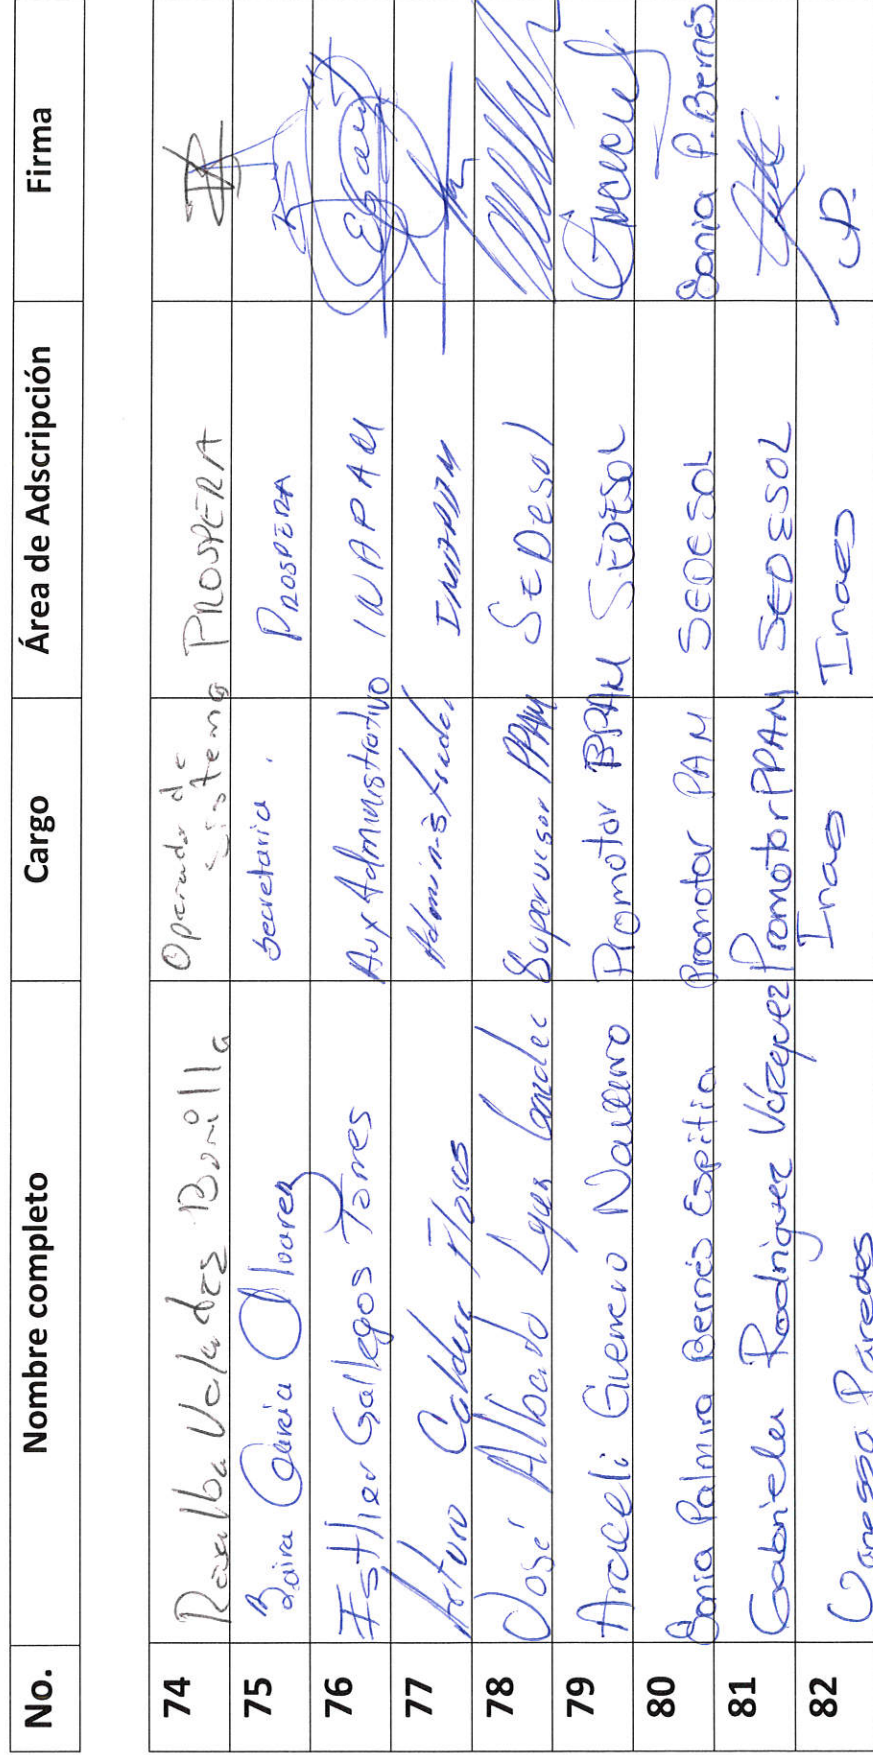 No. Nombre completo Cargo Área de Adscripción Firma
74 Rosalba Valadez Bonilla Operador de Sistema PROSPERA
75 Zaira García Olivares Secretaria. PROSPERA
76 Esther Gallegos Torres Aux Administrativo INAPAM
77 Arturo Caldera Flores Administrador INAPAM
78 José Alberto Supervisor PPAM SEDESOL
79 Araceli Guerrero Navarro Promotor PPAM SEDESOL
80 Sonia Palmira Bernés Espitia Promotor PAM SEDESOL Sonia P. Bernés
81 Gabriela Rodriguez Vázquez Promotor PPAM SEDESOL
82 Vanessa Paredes Inaes Inaes